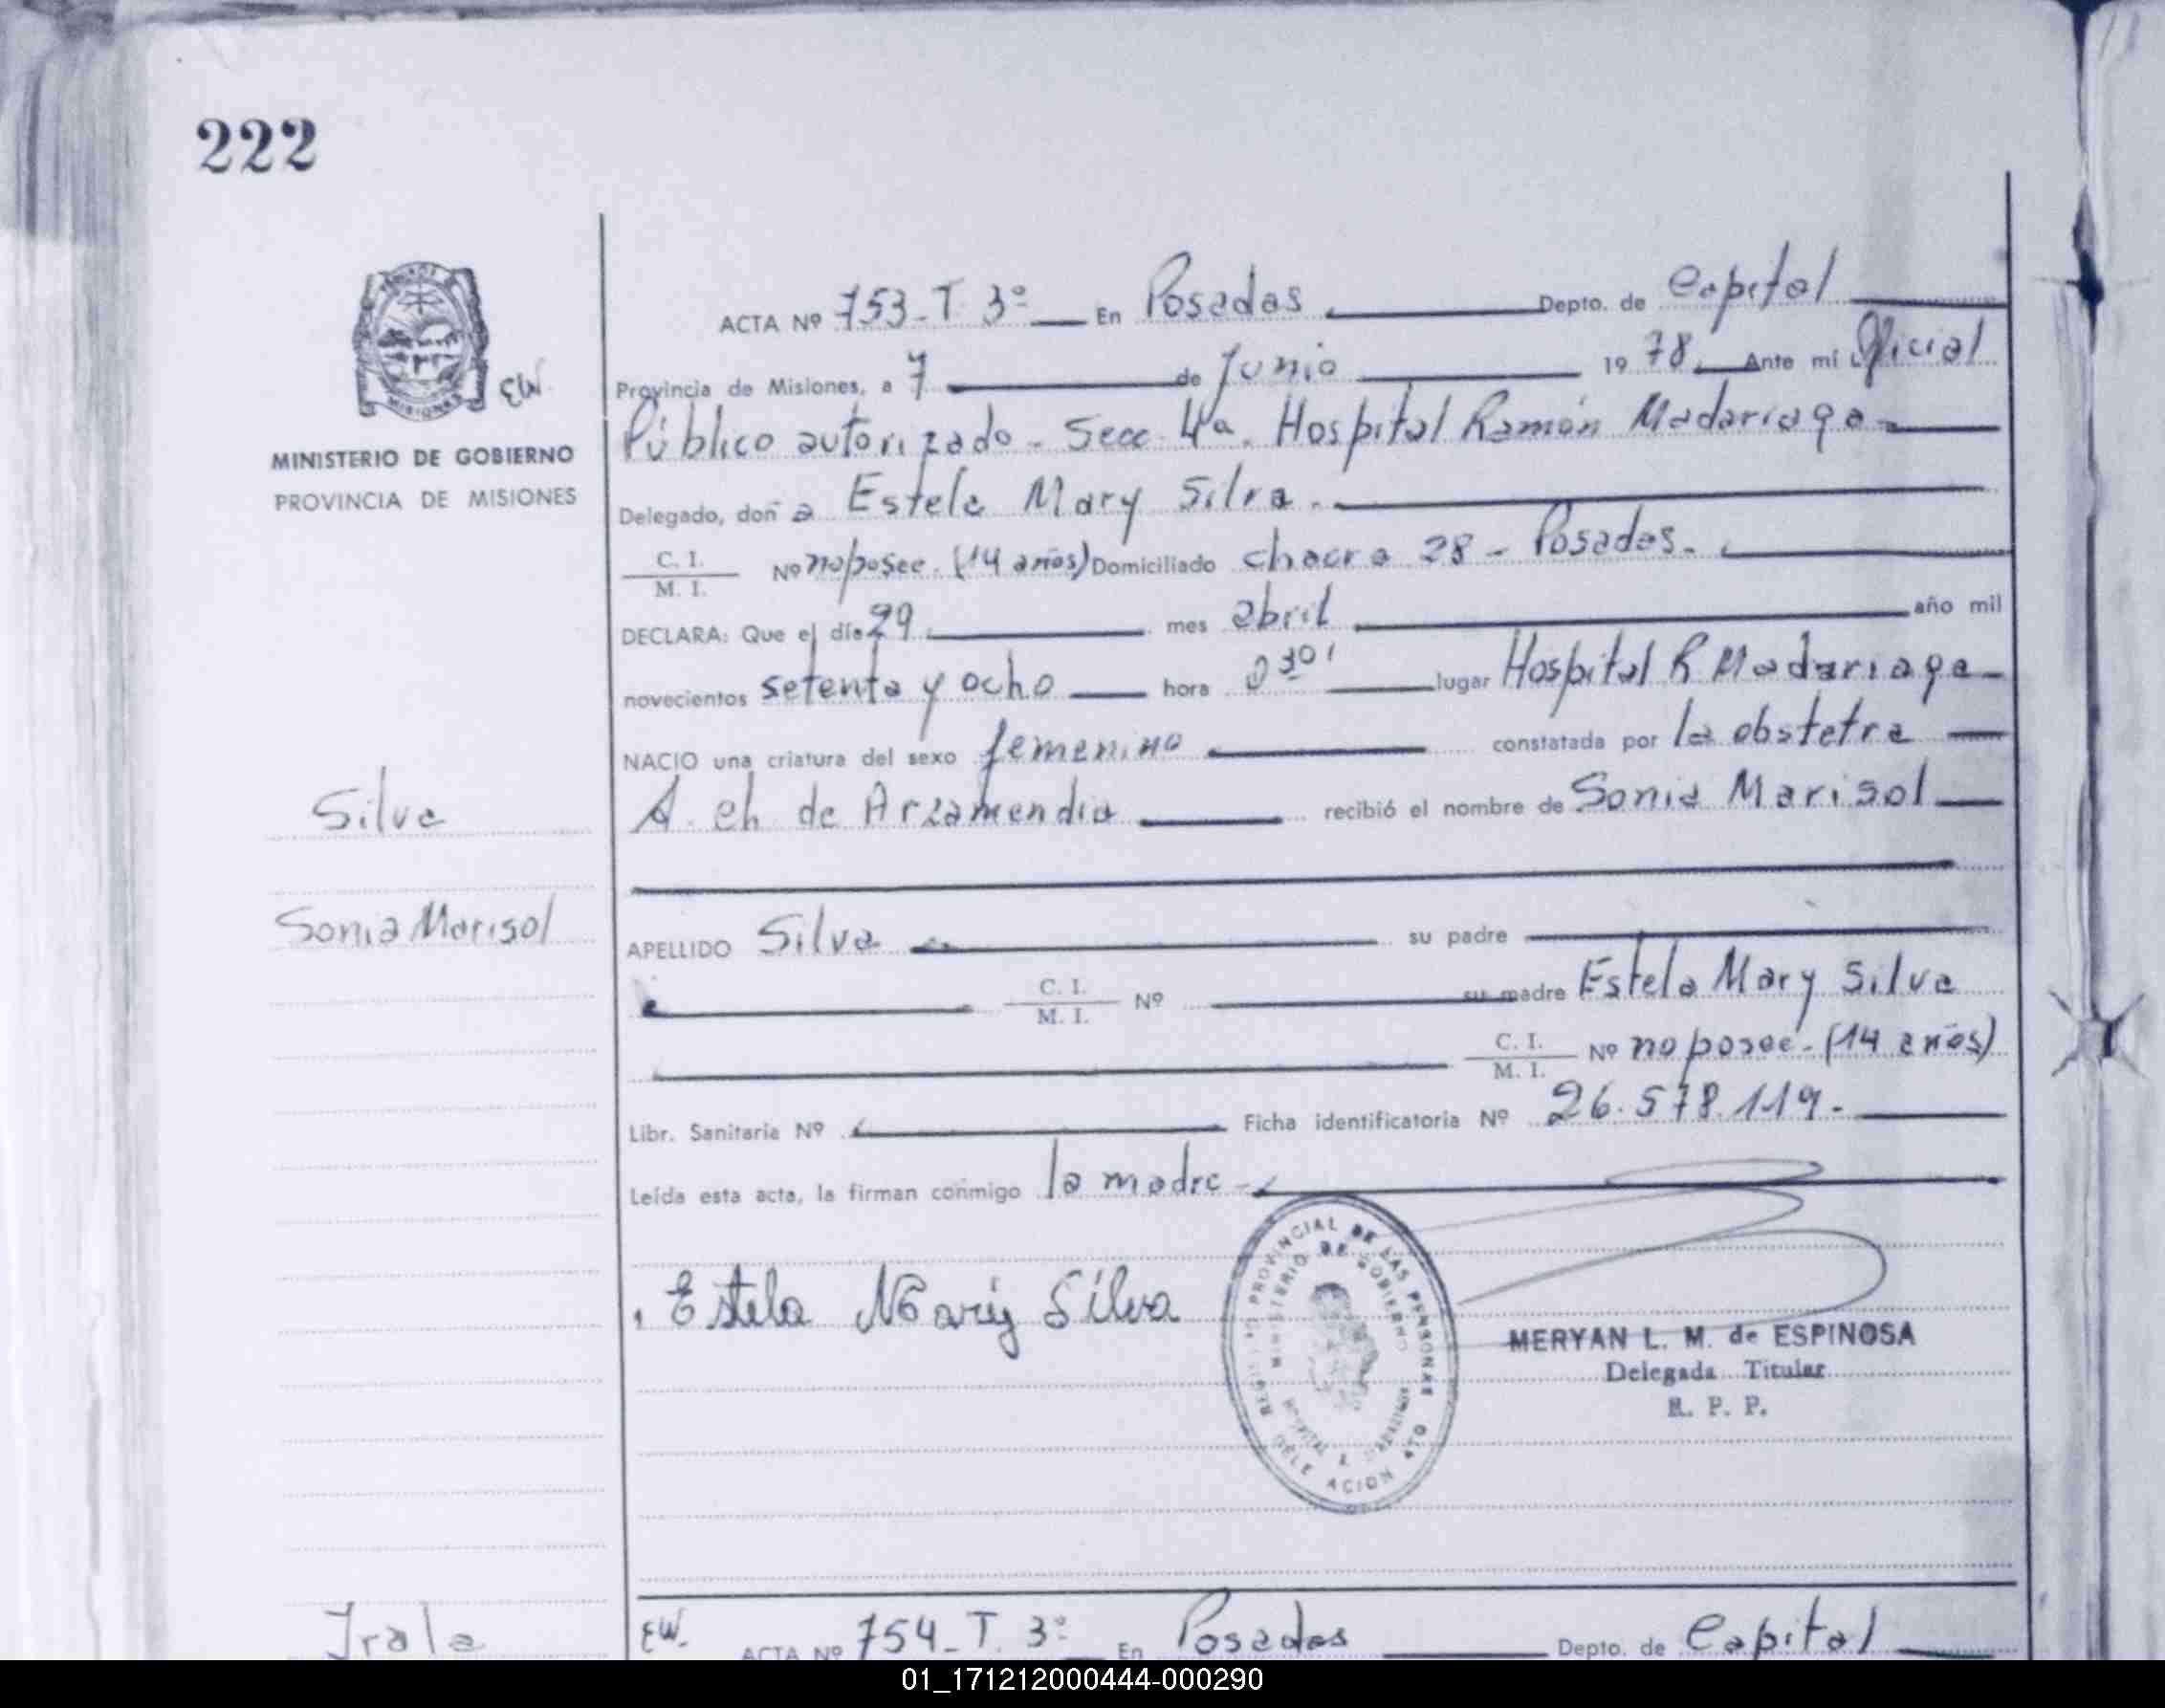 222
ACTA Nº 753-T. 3º En Posadas Depto. de Capital
Provincia de Misiones, a 7 de Junio 1978. Ante mí Oficial
Público autorizado - Secc. 4ª. Hospital Ramón Madariaga
Delegado, doña Estela Mary Silva.
C. I. / M. I. Nº no posee. (14 años) Domiciliado chacra 28 - Posadas.
DECLARA: Que el día 29 mes abril año mil
novecientos setenta y ocho hora 0 30' lugar Hospital R Madariaga
NACIO una criatura del sexo femenino constatada por la obstetra
A. ch de Arzamendia recibió el nombre de Sonia Marisol
APELLIDO Silva su padre
C. I. / M. I. Nº su madre Estela Mary Silva
C. I. / M. I. Nº no posee. (14 años)
Libr. Sanitaria Nº Ficha identificatoria Nº 26.578.119.
Leída esta acta, la firman conmigo la madre
Estela Mary Silva
MERYAN L. M. de ESPINOSA
Delegada Titular
R. P. P.
PROVINCIAL DE LAS PERSONAS
MINISTERIO DE GOBIERNO
EW
MINISTERIO DE GOBIERNO
PROVINCIA DE MISIONES
MISIONES
Silva
Sonia Marisol
Irala
EW. ACTA Nº 754-T. 3º En Posadas Depto. de Capital
01_171212000444-000290